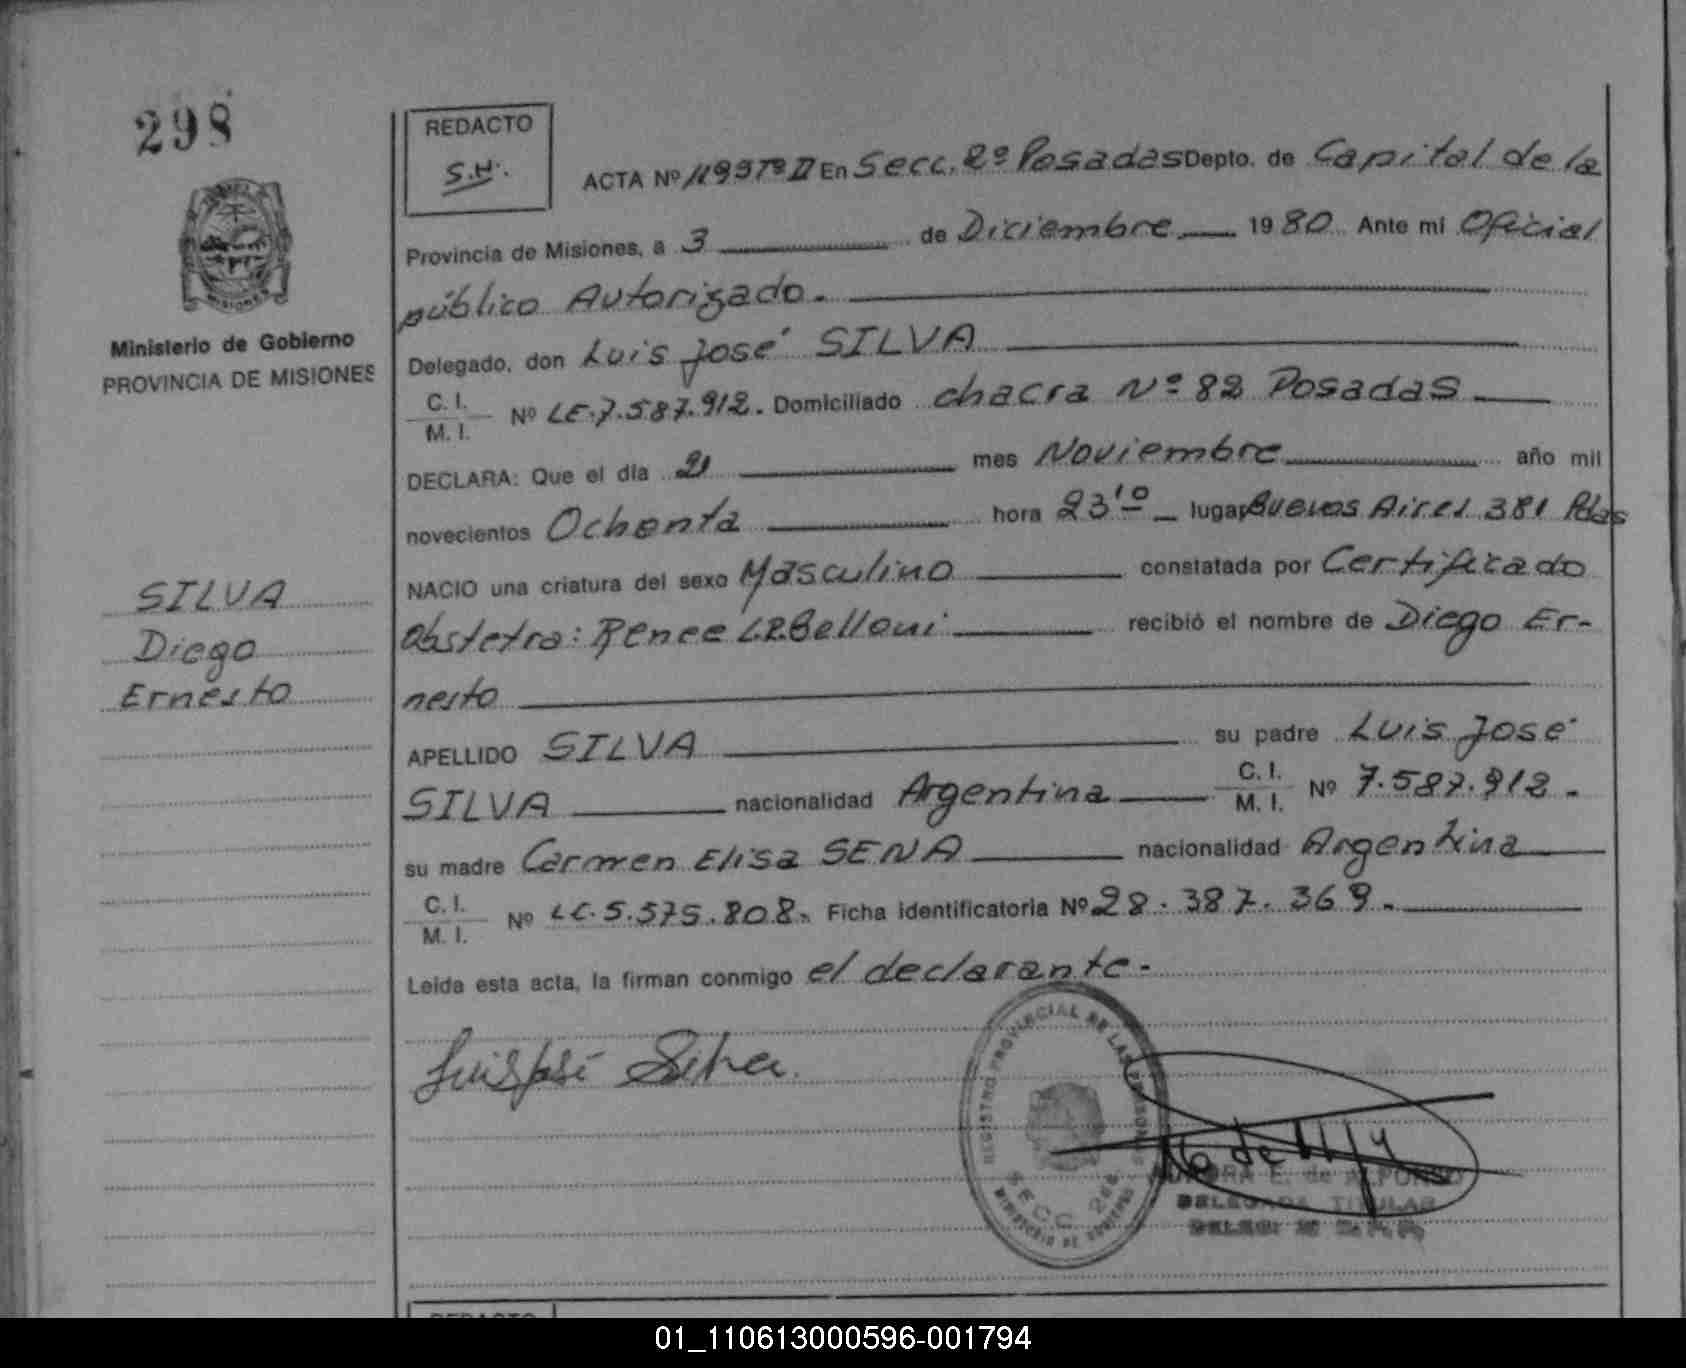 298
REDACTO
S.H.
ACTA Nº 1199 Tº II En Secc. 2º Posadas Depto. de Capital de la
Provincia de Misiones, a 3 de Diciembre 1980. Ante mi Oficial
público Autorizado.
MISIONES
Ministerio de Gobierno
PROVINCIA DE MISIONES
Delegado, don Luis José SILVA
C. I.
M. I.
Nº LE.7.587.912. Domiciliado chacra Nº 82 Posadas
DECLARA: Que el día 21 mes Noviembre año mil
novecientos Ochenta hora 23 10 lugar Buenos Aires 381 Pdas
NACIO una criatura del sexo Masculino constatada por Certificado
Obstetra: Renee L.R.Belloni recibió el nombre de Diego Er-
nesto
SILVA
Diego
Ernesto
APELLIDO SILVA su padre Luis José
SILVA nacionalidad Argentina C. I. M. I. Nº 7.587.912.
su madre Carmen Elisa SENA nacionalidad Argentina
C. I.
M. I.
Nº LC.5.575.808. Ficha identificatoria Nº 28.387.369.
Leída esta acta, la firman conmigo el declarante.
Luis José Silva.
REGISTRO PROVINCIAL DE LAS PERSONAS
SECC. 2da.
MINISTERIO DE GOBIERNO
AURORA E. de ALFONSO
DELEGADA TITULAR
REDACTO
01_110613000596-001794